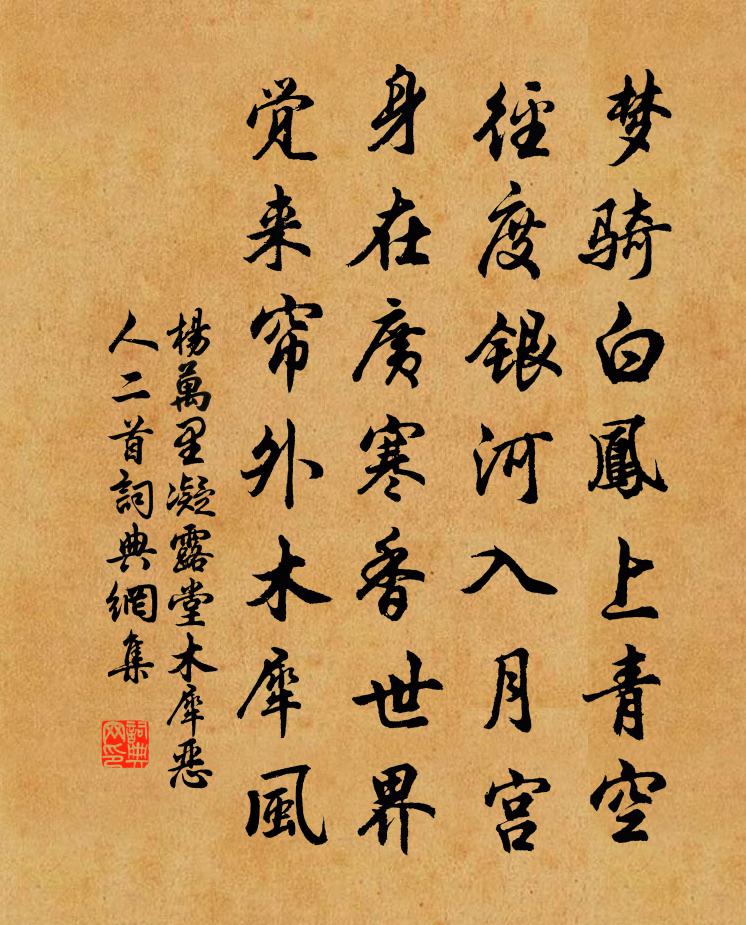 梦骑白鳳上青空
徑度銀河入月宮
身在廣寒香世界
覚来帘外木犀風
楊萬里凝露堂木犀恶
人二首詞典網集
詞典
网印